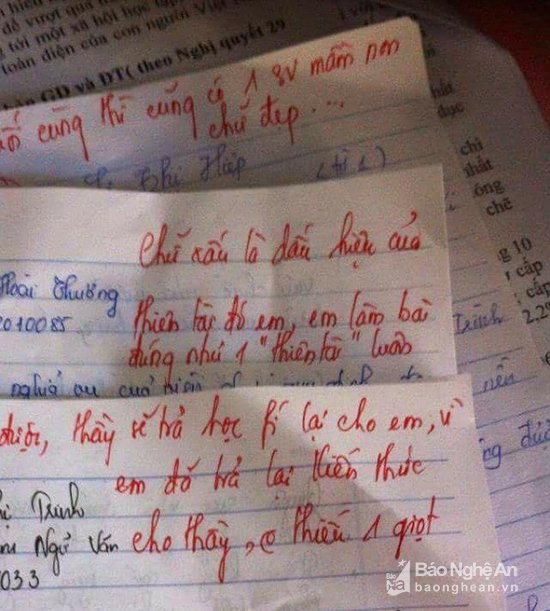 để vượt qua
tới một xã hội học tập
toàn diện của con người Việt
GD và ĐT( theo Nghị quyết 29
cũng thì cũng có 1 gv mầm non
chữ đẹp ...
Chữ xấu là dấu hiệu của
Hoài Thương
thiên tài đó em, em làm bài
010085
đúng như 1 "thiên tài" luôn
thầy sẽ trả học fí lại cho em, vì
em đã trả lại kiến thức
Trinh
Ngữ Văn
cho thầy, o thiếu 1 giọt
033
dục
chỉ
nhất
ông
chẽ
g 10
cấp
cấp
2,2
nên
Báo Nghệ An
baonghean.vn